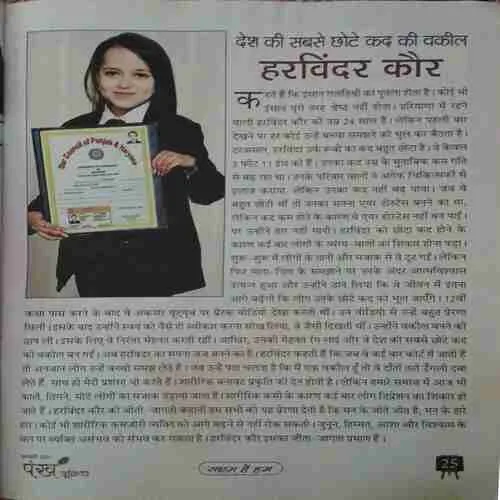 देश की सबसे छोटे कद की वकील
हरविंदर कौर
Bar Council of Punjab & Haryana
कहते हैं कि इंसान गलतियों का पुतला होता है। कोई भी
इंसान पूरी तरह श्रेष्ठ नहीं होता। हरियाणा में रहने
वाली हरविंदर कौर की उम्र 24 साल है। लेकिन पहली बार
देखने पर हर कोई उन्हें बच्चा समझने की भूल कर बैठता है।
दरअसल, हरविंदर उर्फ रूबी का कद बहुत छोटा है। वे केवल
3 फीट 11 इंच की हैं। उनका कद उम्र के मुताबिक कम गति
से बढ़ पा रहा था। उनके परिवार वालों ने अनेक चिकित्सकों से
इलाज कराया, लेकिन उनका कद नहीं बढ़ पाया। जब वे
बहुत छोटी थीं तो उनका सपना एयर होस्टेस बनने का था,
लेकिन कद कम होने के कारण वे एयर होस्टेस नहीं बन पाईं।
पर उन्होंने हार नहीं मानी। हरविंदर को छोटा कद होने के
कारण कई बार लोगों के व्यंग्य-बाणों का शिकार होना पड़ा।
शुरू-शुरू में लोगों के तानों और मजाक से वे टूट गईं। लेकिन
फिर माता-पिता के समझाने पर उनके अंदर आत्मविश्वास
उत्पन्न हुआ और उन्होंने ठान लिया कि वे जीवन में इतना
आगे बढ़ेंगी कि लोग उनके छोटे कद को भूल जाएँगे। 12वीं
कक्षा पास करने के बाद वे अकसर यूट्यूब पर प्रेरक वीडियो देखा करती थीं। उन वीडियो से उन्हें बहुत प्रेरणा
मिली। इसके बाद उन्होंने स्वयं को वैसे ही स्वीकार करना सीख लिया, वे जैसी दिखती थीं। उन्होंने वकील बनने की
ठान ली। इसके लिए वे निरंतर मेहनत करती रहीं। आखिर, उनकी मेहनत रंग लाई और वे देश की सबसे छोटे कद
की वकील बन गईं। अब हरविंदर का सपना जज बनने का है। हरविंदर कहती हैं कि जब वे कई बार कोर्ट में जाती हैं
तो अनजान लोग उन्हें बच्ची समझ लेते हैं। जब उन्हें पता चलता है कि मैं एक वकील हूँ तो वे दाँतों तले उँगली दबा
लेते हैं, साथ ही मेरी प्रशंसा भी करते हैं। शारीरिक बनावट प्रकृति की देन होती है। लेकिन हमारे समाज में आज भी
काले, ठिगने, मोटे लोगों का मजाक उड़ाया जाता है। शारीरिक कमी के कारण कई बार लोग डिप्रेशन का शिकार हो
जाते हैं। हरविंदर कौर की जीती-जागती कहानी हम सभी को यह प्रेरणा देती है कि मन के जीते जीत है, मन के हारे
हार। कोई भी शारीरिक कमजोरी व्यक्ति को आगे बढ़ने से नहीं रोक सकती। जुनून, हिम्मत, आशा और विश्वास के
बल पर व्यक्ति असंभव को संभव कर सकता है। हरविंदर कौर इसका जीता-जागता प्रमाण हैं।
पंख
सक्षम हैं हम
25